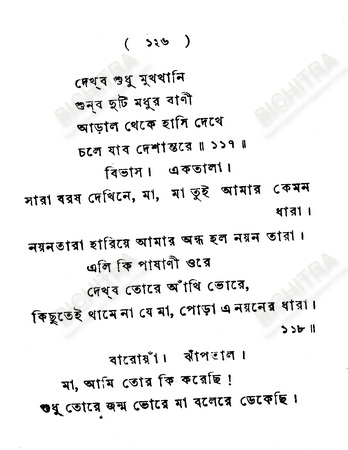 ( ১২৬ )
দেখ্‌ব শুধু মুখখানি
শুন্‌ব দুটি মধুর বাণী
আড়াল থেকে হাসি দেখে
চলে যাব দেশান্তরে ॥ ১১৭ ॥
বিভাস। একতালা।
সারা বরষ দেখিনে, মা, মা তুই আমার কেমন
ধারা।
নয়নতারা হারিয়ে আমার অন্ধ হল নয়ন তারা।
এলি কি পাষাণী ওরে
দেখ্‌ব তোরে আঁখি ভোরে,
কিছুতেই থামেনা যে মা, পোড়া এ নয়নের ধারা।
১১৮ ॥
বারোয়াঁ। ঝাঁপতাল।
মা, আমি তোর কি করেছি!
শুধু তোরে জন্ম ভোরে মা বলেরে ডেকেছি।
BICHITRA
BICHITRA
BICHITRA
BICHITRA